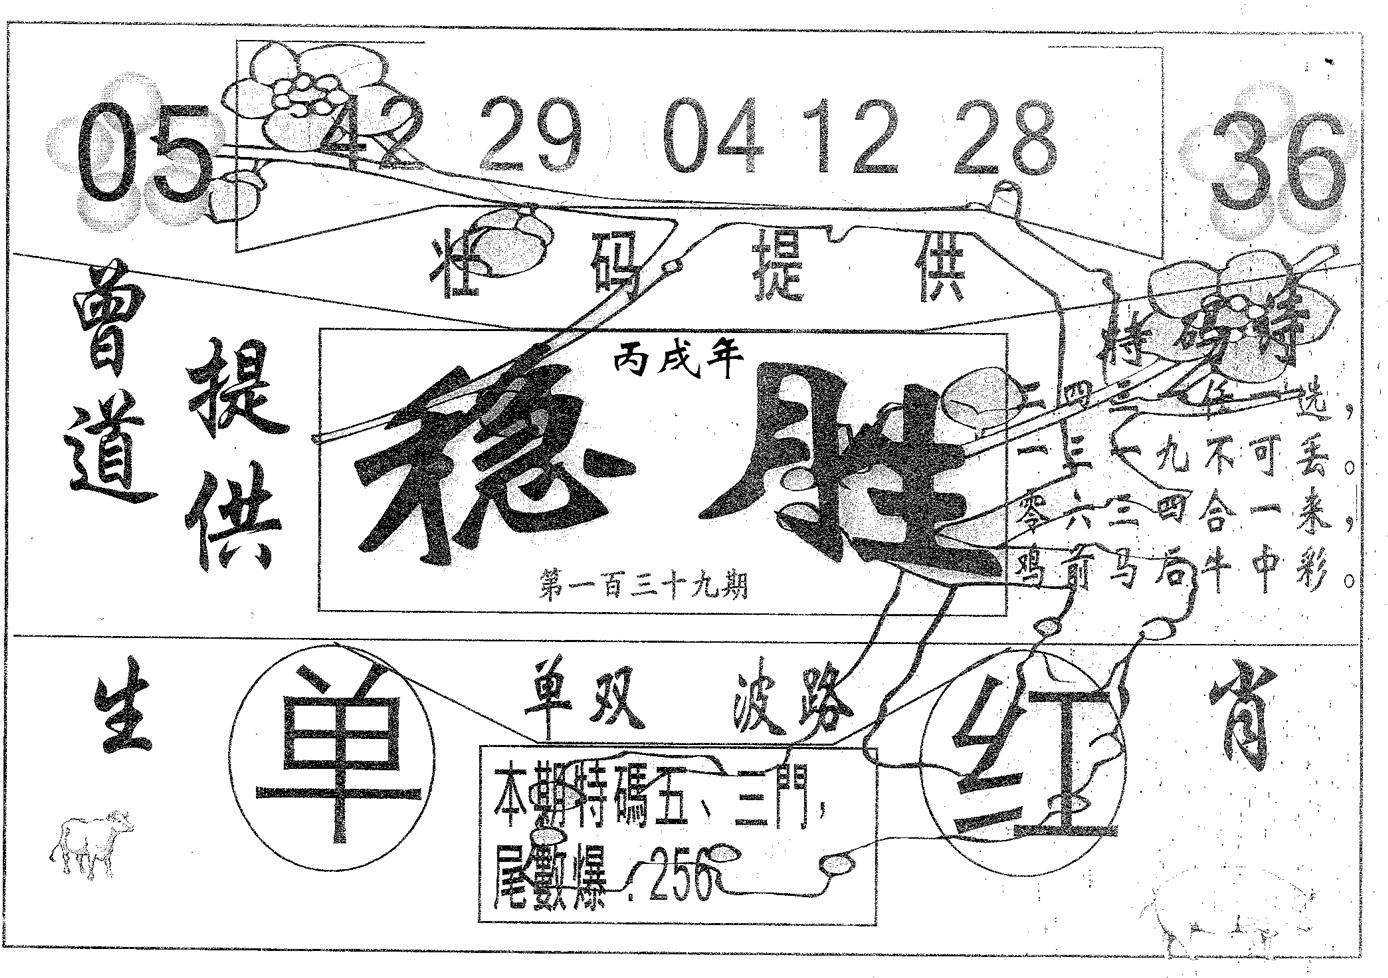 05 42 29 04 12 28 36
壮码提供
曾道
提供
丙戌年
稳胜
第一百三十九期
特码诗
二四三一任一选，
一三一九不可丢。
零六三四合一来，
鸡前马后牛中彩。
生
单
单双 波路
红
肖
本期特碼五、三門，
尾數爆：256